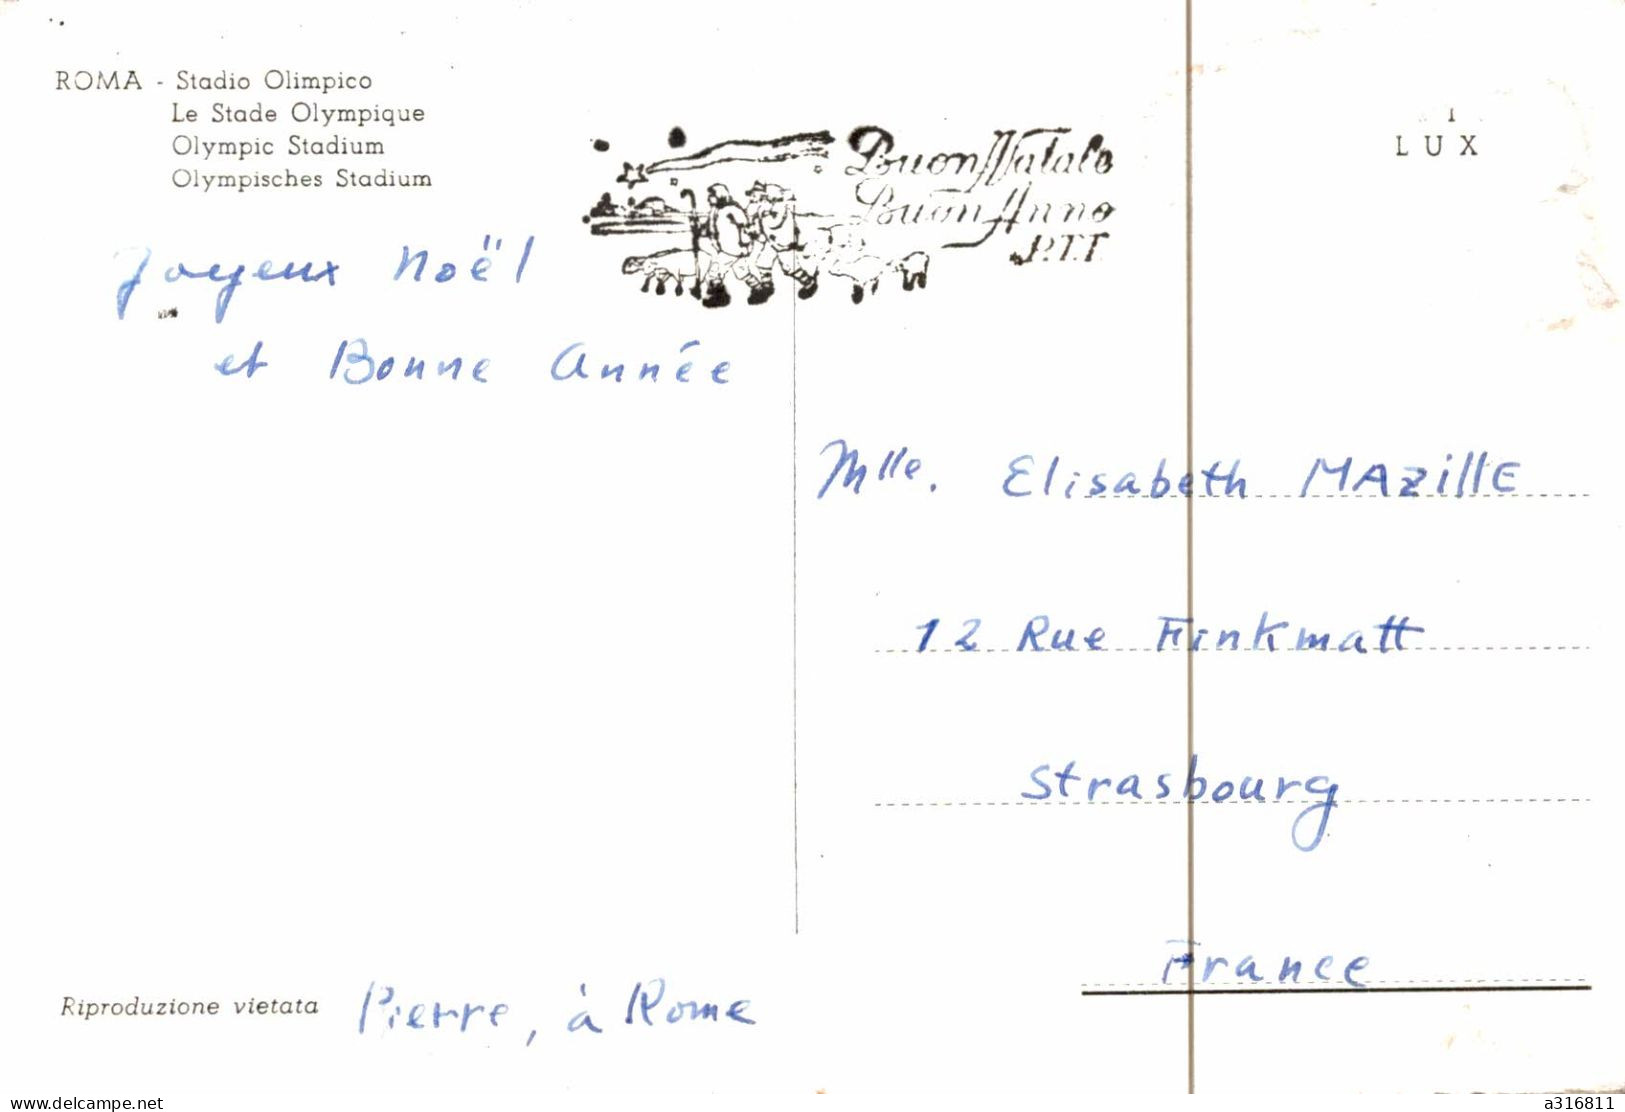 ROMA - Stadio Olimpico
Le Stade Olympique
Olympic Stadium
Olympisches Stadium
Buon Natale
Buon Anno
P.T.T.
LUX
Joyeux Noël
et Bonne Année
Mlle. Elisabeth MAZillE
12 Rue Finkmatt
Strasbourg
France
Riproduzione vietata
Pierre, à Rome
www.delcampe.net
a316811